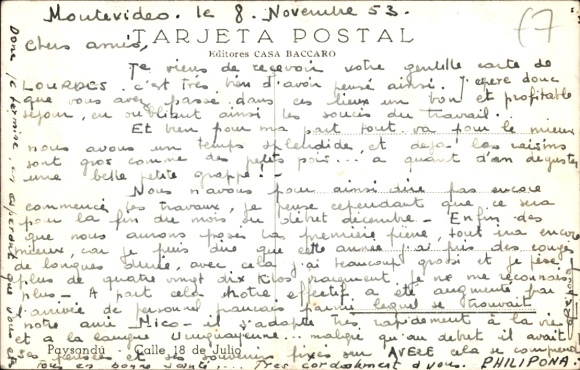 Montevideo. le 8. Novembre 53.
Chers amis,
TARJETA POSTAL
Editores CASA BACCARO
Je viens de recevoir votre gentille carte de
LOURDES. c'est très bien d'avoir pensé ainsi. J'espère donc
que vous avez passé dans ces lieux un bon et profitable
séjour, en oubliant ainsi les soucis du travail.
Et bien pour ma part tout va pour le mieux
nous avons un temps splendide, et déjà les raisins
sont gros comme des petits pois... a quant d'en déguster
une belle petite grappe!
Nous n'avons pour ainsi dire pas encore
commencé les travaux, je pense cependant que ce sera
pour la fin du mois ou début décembre - Enfin dès
que nous aurons posé la première pierre, tout ira encore
mieux, car je puis dire que cette année j'ai pris des congés
de longues durée, avec cela j'ai beaucoup grossi et je pèse
plus de quatre vingt dix kilos vraiment je ne me reconnais
plus - A part cela notre effectif a été augmenté par
l'arrivée de personnel français parmi lequel se trouvait
notre ami Mico - il s'adapte très rapidement à la vie
et a la langue Uruguayenne. malgré qu'au début il avait
Paysandú Calle 18 de Julio
ses pensées et ses souvenir fixés sur AUERE cela se comprend
tous en bonne santé... Très cordialement à vous. PHILIPONA.
Donc je termine, en espérant que vous êtes
17